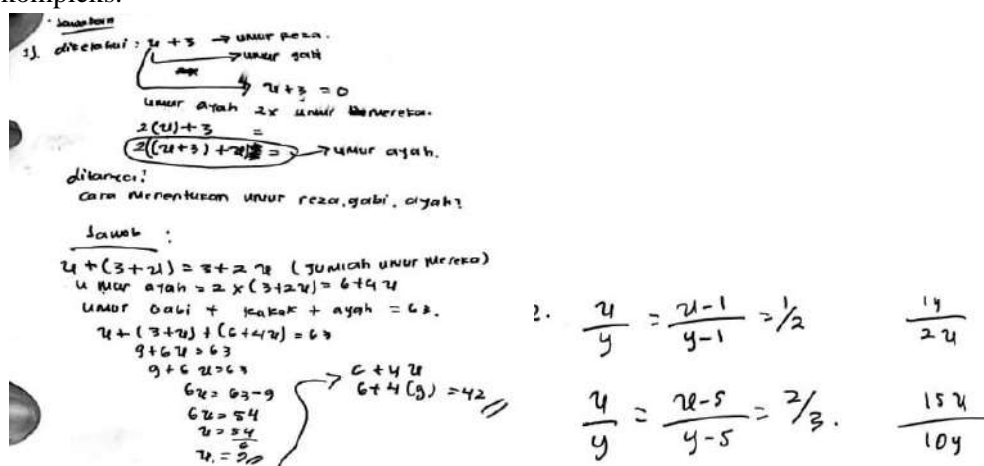 kompleks.
Jawaban
1). diketahui : x + 3 → umur reza.
→ umur gabi
x + 3 = 0
umur ayah 2x umur mereka.
2(x) + 3 =
2((x+3) + x) = → umur ayah.
ditanya?
cara menentukan umur reza, gabi, ayah?
Jawab :
x + (3 + x) = 3 + 2x (jumlah umur mereka)
umur ayah = 2 x (3+2x) = 6+4x
umur Gabi + kakak + ayah = 63.
x + (3+x) + (6+4x) = 63
9+6x = 63
9+6x = 63
6x = 63-9
6x = 54
x = 54/6
x = 9
6 + 4x
6 + 4(9) = 42
2. x/y = x-1/y-1 = 1/2
1y/2x
x/y = x-5/y-5 = 2/3.
15x/10y